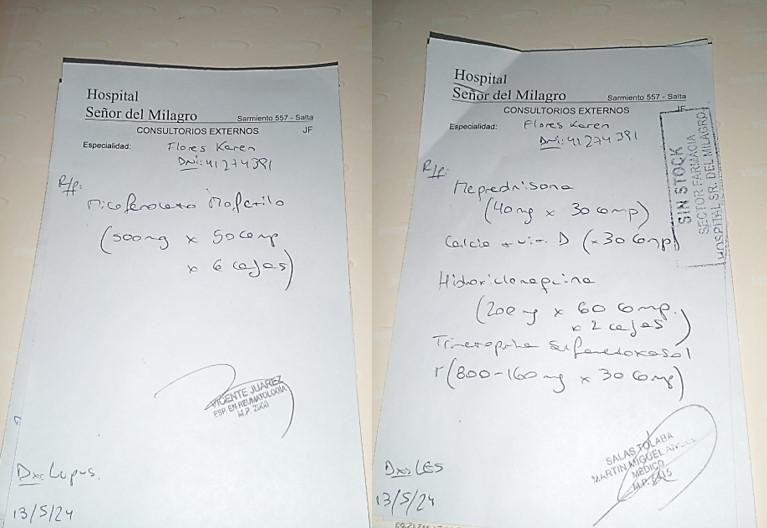 Hospital
Señor del Milagro
Sarmiento 557 - Salta
CONSULTORIOS EXTERNOS
JF
Especialidad: Flores Karen
DNI: 41274391
R/p:
Micofenolato Mofetilo
(500mg x 50 comp
x 6 cajas)
VICENTE JUAREZ
ESP. EN REUMATOLOGIA
M.P.
Dx: Lupus.
13/5/24
Hospital
Señor del Milagro
Sarmiento 557 - Salta
CONSULTORIOS EXTERNOS
JF
Especialidad: Flores Karen
DNI: 41274391
SIN STOCK
SECTOR FARMACIA
HOSPITAL SR. DEL MILAGRO
R/p:
Meprednisona
(40mg x 30 comp)
Calcio + vit. D (x 30 comp)
(200mg x 60 comp.
x 2 cajas)
(800-160mg x 30 comp)
SALAS TOLABA
MARTIN MIGUEL
MEDICO
M.P.
Dx: LES
13/5/24